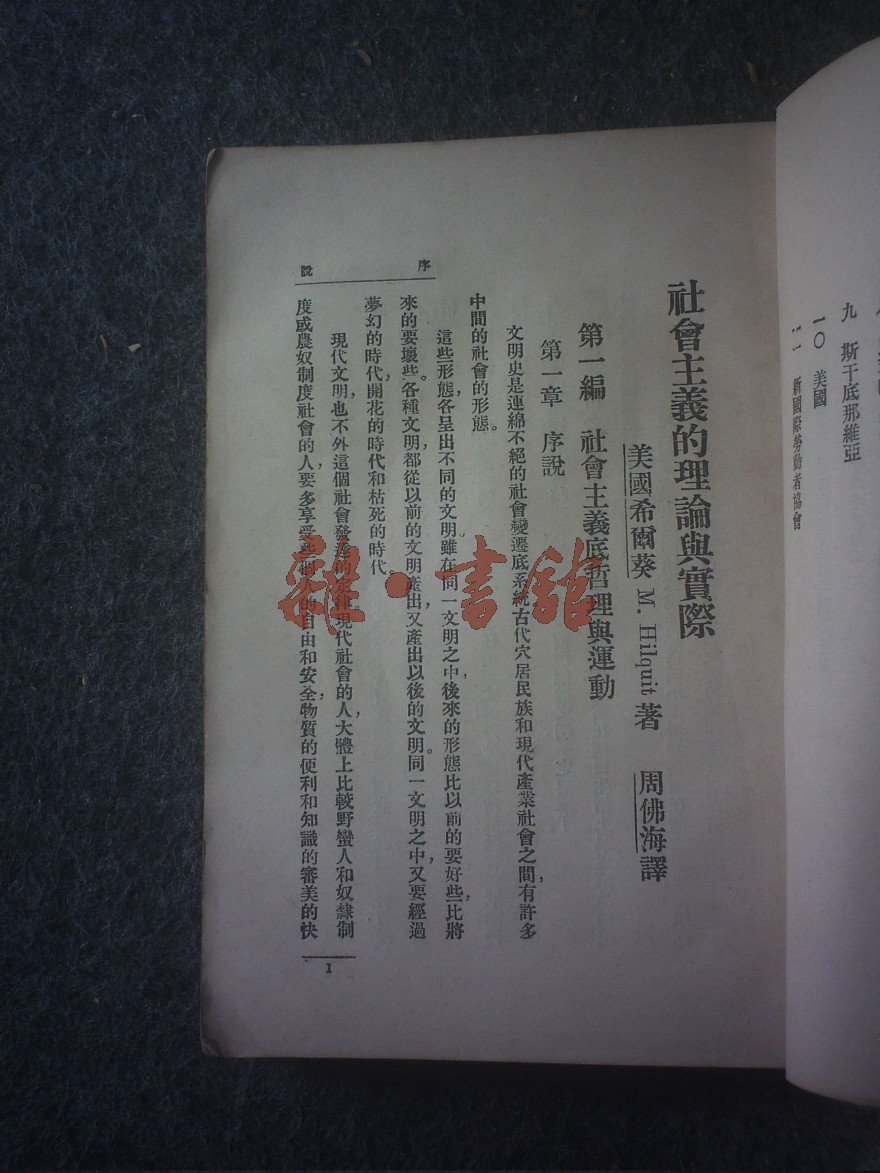 九 斯干底那維亞
一〇 美國
一一 新國際勞動者協會
社會主義的理論與實際
美國希爾葵 M. Hilquit 著 周佛海譯
第一編 社會主義底哲理與運動
第一章 序說
文明史是連綿不絕的社會變遷底系統古代穴居民族和現代產業社會之間，有許多
中間的社會的形態。
這些形態，各呈出不同的文明雖在同一文明之中，後來的形態比以前的要好些，比將
來的要壞些。各種文明，都從以前的文明產出，又產出以後的文明。同一文明之中，又要經過
夢幻的時代，開花的時代和枯死的時代。
現代文明，也不外這個社會發達的定律。現代社會的人，大體上比較野蠻人和奴隸制
度或農奴制度社會的人，要多享受些個人的自由和安全，物質的便利和知識的審美的快
序 說
1
雜·書館